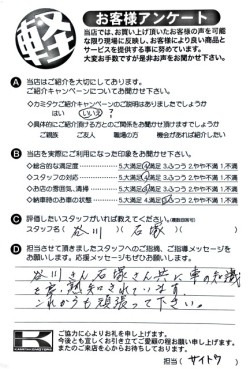 軽
お客様アンケート
当店では、お買い上げ頂いたお客様の声を可能
な限り現場に反映し、お客様により良い商品と
サービスを提供する事に努めています。
大変お手数ですが是非お声をお聞かせ下さい。
A 当店はご紹介を大切にしております。
ご紹介キャンペーンについてお聞かせ下さい。
◇カミタケご紹介キャンペーンのご説明はありましたでしょうか
はい いいえ ?
◇具体的にご紹介頂ける方とのご関係をお聞かせ頂けますでしょうか
ご親族 ご友人 職場の方 機会があれば紹介したい
B 当店を実際にご利用になった印象をお聞かせ下さい。
◇総合的な満足度 5.大満足 4.満足 3.ふつう 2.やや不満 1.不満
◇スタッフの対応 5.大満足 4.満足 3.ふつう 2.やや不満 1.不満
◇お店の雰囲気、清掃 5.大満足 4.満足 3.ふつう 2.やや不満 1.不満
◇納車時のお車の状態 5.大満足 4.満足 3.ふつう 2.やや不満 1.不満
C 評価したいスタッフがいれば教えてください。(複数回答可)
スタッフ名( 谷川 )( 石塚 )( )
D 担当させて頂きましたスタッフへのご指摘、ご指導メッセージを
お願いします。応援メッセージもぜひお願いします。
谷川さん石塚さん共に車の知識
を熟知されています
これからも頑張って下さい。
K
ご協力に心よりお礼を申し上げます。
今後とも宜しくお引き立てご愛顧の程お願い申し上げます。
またのご来店を心からお待ちしております。
担当( サイトウ )